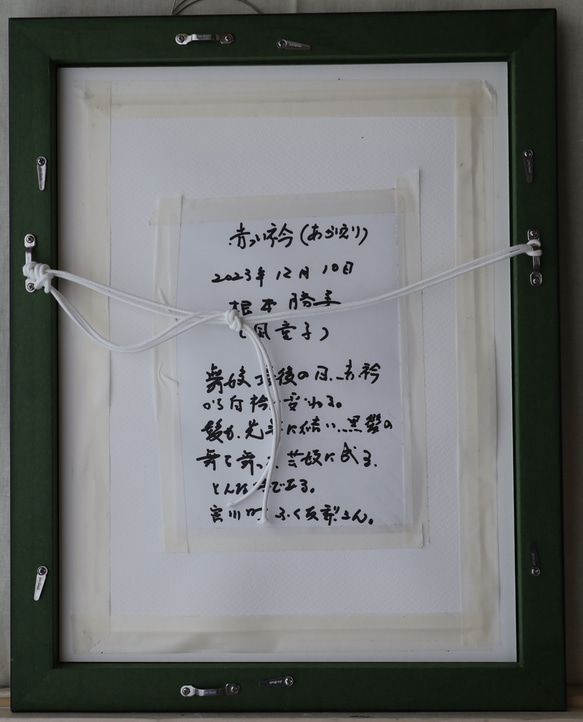 赤い衿(あかえり)
2023年12月10日
根本勝子
(風童子)
舞妓最後の日、赤衿
から白衿に変わる。
髪も先笄に結い、黒髪の
舞を舞い芸妓に成る。
である。
宮川町 ふく友梨さん。